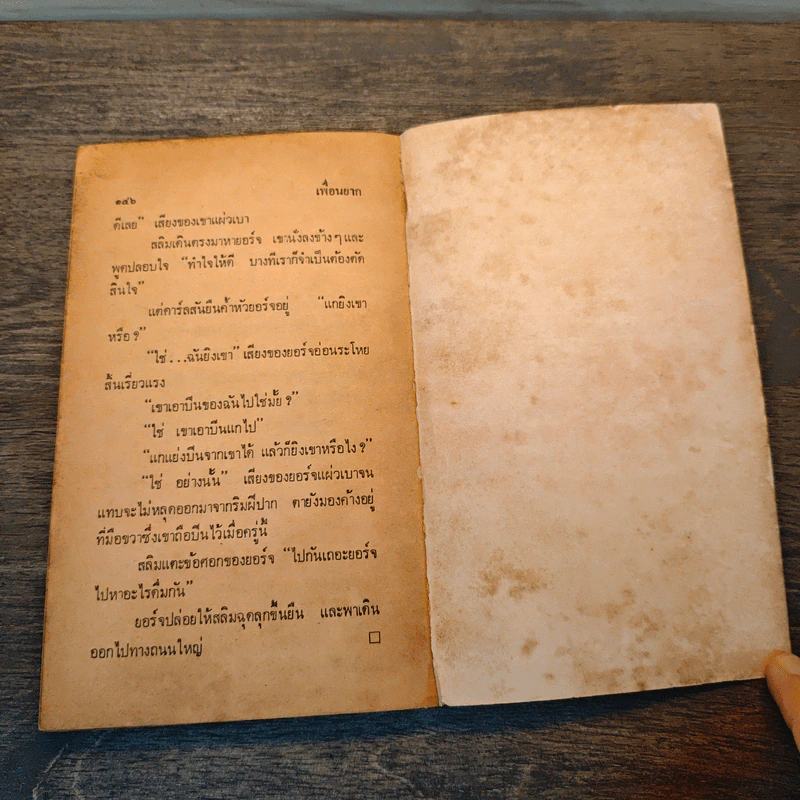 ๑๔๖ เพื่อนยาก
ดีเลย” เสียงของเขาแผ่วเบา
สลิมเดินตรงมาหายอร์จ เขานั่งลงข้างๆ และ
พูดปลอบใจ “ทำใจให้ดี บางทีเราก็จำเป็นต้องตัด
สินใจ”
แต่คาร์ลสันยืนค้ำหัวยอร์จอยู่ “แกยิงเขา
หรือ ?”
“ใช่...ฉันยิงเขา” เสียงของยอร์จอ่อนระโหย
สิ้นเรี่ยวแรง
“เขาเอาปืนของฉันไปใช่มั้ย ?”
“ใช่ เขาเอาปืนแกไป”
“แกแย่งปืนจากเขาได้ แล้วก็ยิงเขาหรือไง ?”
“ใช่ อย่างนั้น” เสียงของยอร์จแผ่วเบาจน
แทบจะไม่หลุดออกมาจากริมฝีปาก ตายังมองค้างอยู่
ที่มือขวาซึ่งเขาถือปืนไว้เมื่อครู่นี้
สลิมแตะข้อศอกของยอร์จ “ไปกันเถอะยอร์จ
ไปหาอะไรดื่มกัน”
ยอร์จปล่อยให้สลิมฉุดลุกขึ้นยืน และพาเดิน
ออกไปทางถนนใหญ่ □